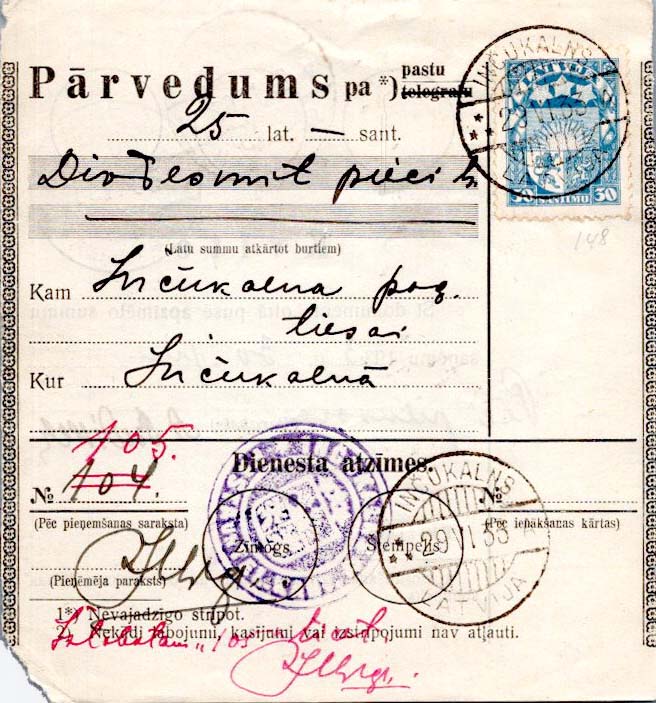 Pārvedums pa *) pastu
telegrafu
INČUKALNS
LATVIJA
29 VI 33
30 SANTIMU 30
148
25 lat. — sant.
Divdesmit pieci ls
(Latu summu atkārtot burtiem)
Kam Inčukalna pag.
tiesai
Kur Inčukalnā
105.
Dienesta atzīmes.
№ 104.
№
(Pēc pieņemšanas saraksta)
(Pēc ienākšanas kārtas)
Zīmogs
Stempelis
INČUKALNS
29 VI 33
LATVIJA
(Pieņēmēja paraksts)
1*) Nevajadzīgo stripot.
2) Nekādi labojumi, kasijumi vai izstripojumi nav atļauti.
Izlabotam "105" ticēt.